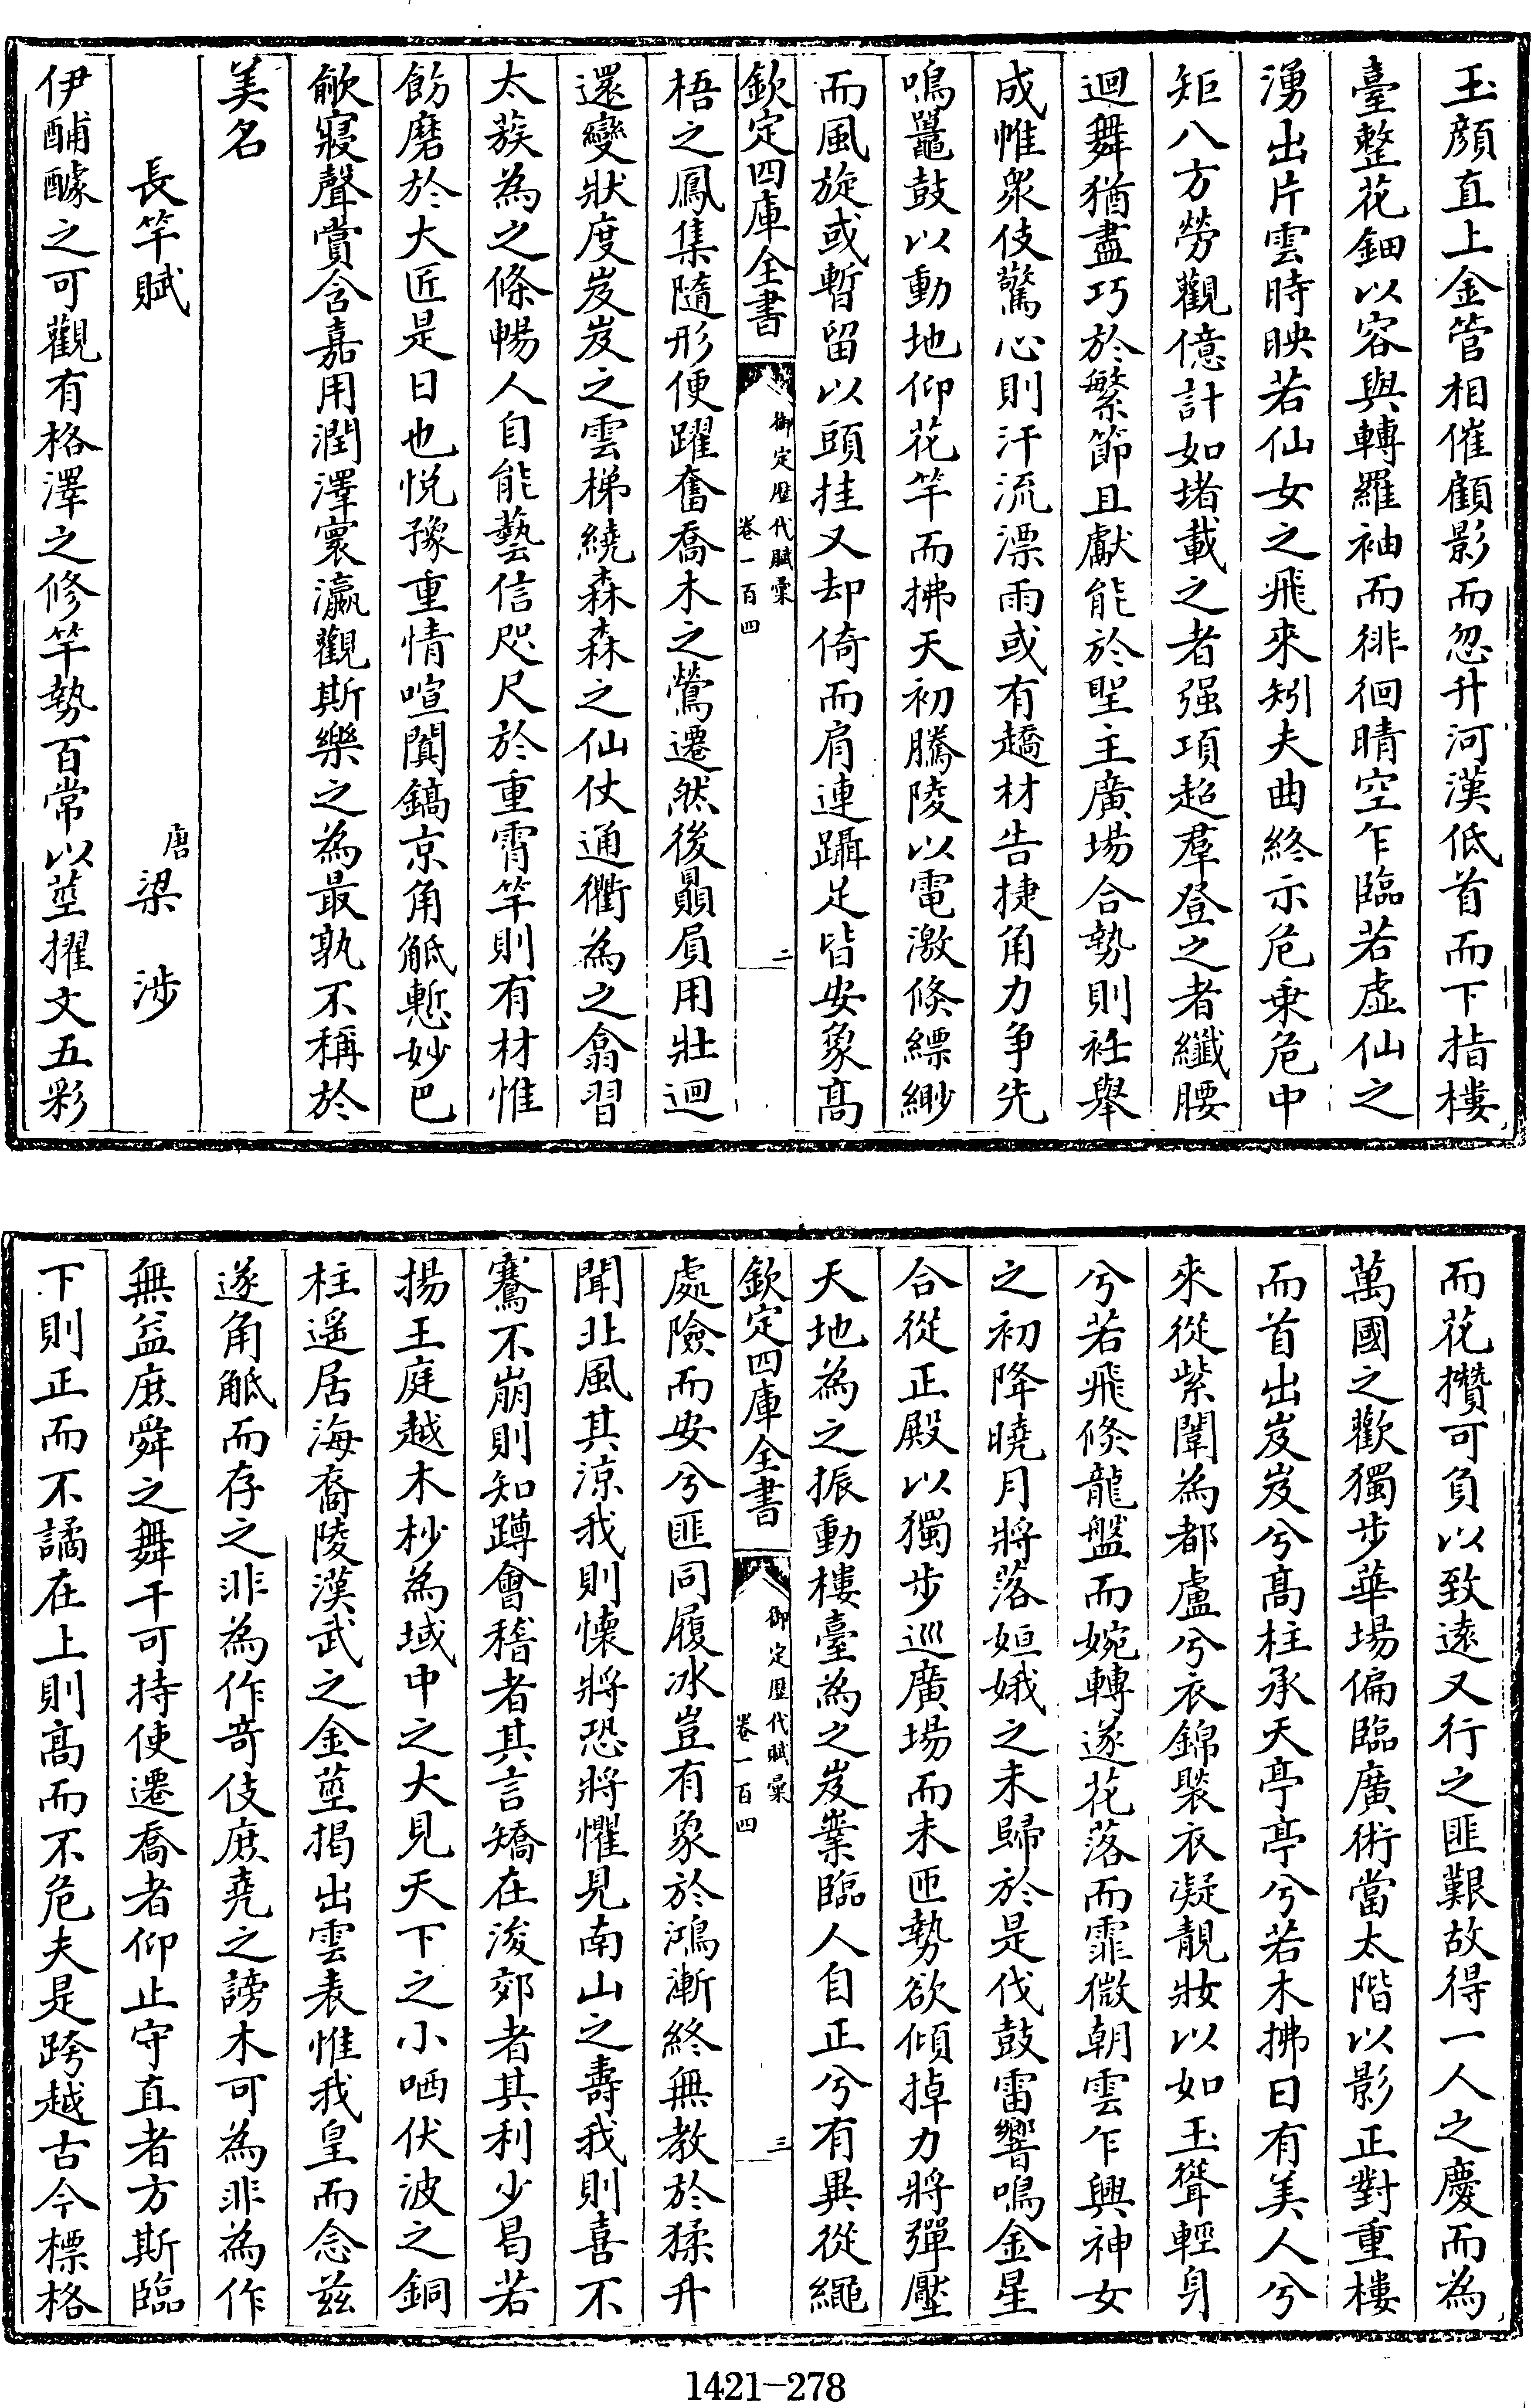 玉顔直上金管相催顧影而忽升河漢低首而下指樓
臺整花鈿以容與轉羅袖而徘徊晴空乍臨若虛仙之
湧出片雲時映若仙女之飛來矧夫曲終示危乗危中
矩八方勞觀億計如堵載之者强項超羣登之者纖腰
迴舞猶盡巧於繁節且獻能於聖主廣場合勢則袵舉
成帷衆伎驚心則汗流漂雨或有趫材告捷角力争先
鳴鼉鼓以動地仰花竿而拂天初騰陵以電激倐縹緲
而風旋或暫留以頭挂又却倚而肩連躡足皆安象髙
欽定四庫全書
御定歴代賦彙
卷一百四
二
梧之鳳集隨形便躍奮喬木之鶯遷然後贔屓用壯迴
還變狀度岌岌之雲梯繞森森之仙仗通衢為之翕習
太蔟為之條暢人自能藝信咫尺於重霄竿則有材惟
飭磨於大匠是日也悦豫重情喧闐鎬京角觝慙妙巴
歈寢聲賞含嘉用潤澤寰瀛觀斯樂之為最孰不稱於
美名
長竿賦
唐
梁涉
伊酺醵之可觀有格澤之修竿勢百常以莖擢文五彩
而花攢可負以致逺又行之匪艱故得一人之慶而為
萬國之歡獨步華場偏臨廣術當太階以影正對重樓
而首出岌岌兮髙柱承天亭亭兮若木拂日有美人兮
來從紫闈為都盧兮衣錦褧衣凝靚妝以如玉聳輕身
兮若飛倐龍盤而婉轉遂花落而霏微朝雲乍興神女
之初降曉月將落姮娥之未歸於是伐鼓雷響鳴金星
合從正殿以獨步巡廣場而未匝勢欲傾掉力將彈壓
天地為之振動樓臺為之岌嶪臨人自正兮有異從繩
欽定四庫全書
御定歴代賦彙
卷一百四
三
處險而安兮匪同履冰豈有象於鴻漸終無教於猱升
聞北風其涼我則懐將恐將懼見南山之壽我則喜不
騫不崩則知蹲會稽者其言矯在浚郊者其利少曷若
揚王庭越木杪為域中之大見天下之小哂伏波之銅
柱遥居海裔陵漢武之金莖掲出雲表惟我皇而念兹
遂角觝而存之非為作竒伎庶堯之謗木可為非為作
無益庶舜之舞干可持使遷喬者仰止守直者方斯臨
下則正而不譎在上則髙而不危夫是跨越古今標格
1421-278